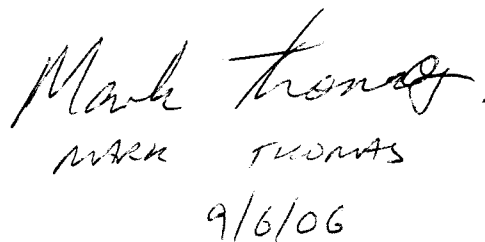 Mark Thomas.
MARK THOMAS
9/6/06